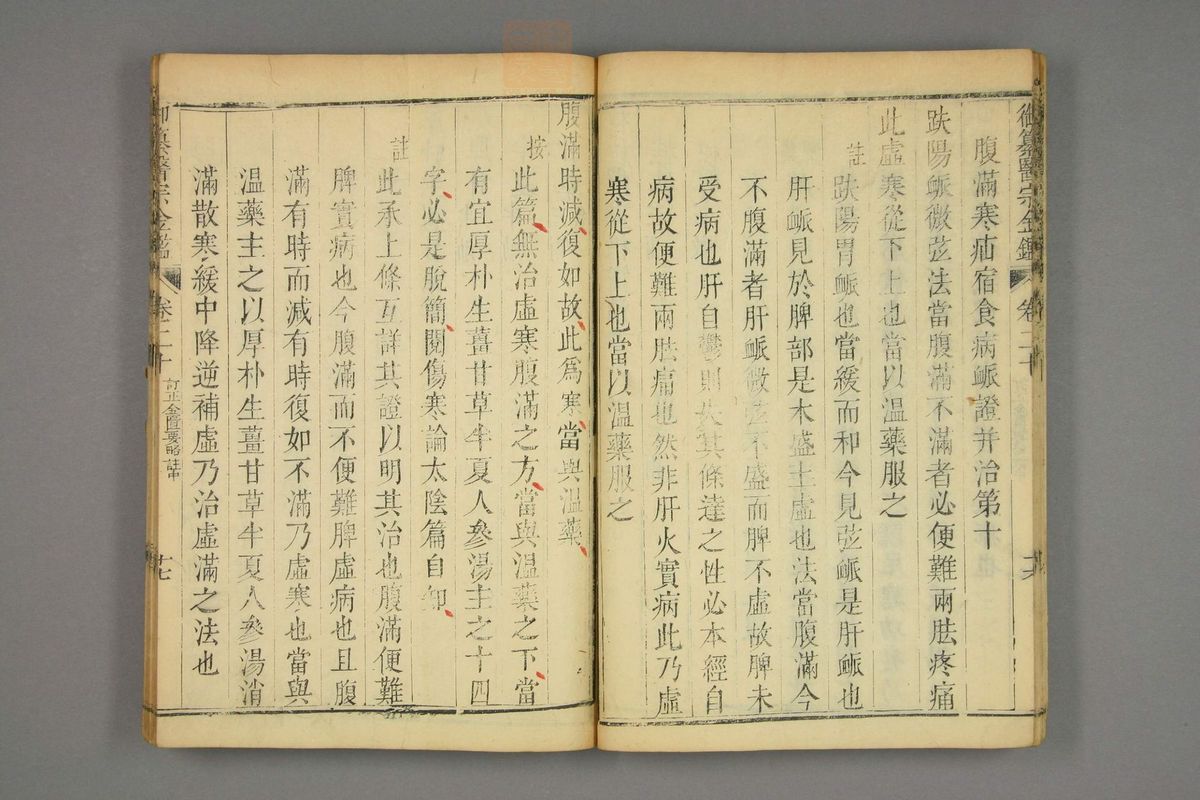 御纂醫宗金鑑 卷二十
腹滿寒疝宿食病脈證并治第十
趺陽脈微弦法當腹滿不滿者必便難兩胠疼痛
此虛寒從下上也當以溫藥服之
註
趺陽胃脈也當緩而和今見弦脈是肝脈也
肝脈見於脾部是木盛土虛也法當腹滿今
不腹滿者肝脈微弦不盛而脾不虛故脾未
受病也肝自鬱則失其條達之性必本經自
病故便難兩胠痛也然非肝火實病此乃虛
寒從下上也當以溫藥服之
腹滿時減復如故此爲寒當與溫藥
按
此篇無治虛寒腹滿之方當與溫藥之下當
有宜厚朴生薑甘草半夏人參湯主之十四
字必是脫簡閱傷寒論太陰篇自知
註
此承上條互詳其證以明其治也腹滿便難
脾實病也今腹滿而不便難脾虛病也且腹
滿有時而減有時復如不滿乃虛寒也當與
溫藥主之以厚朴生薑甘草半夏人參湯消
滿散寒緩中降逆補虛乃治虛滿之法也
御纂醫宗金鑑 卷二十 訂正金匱要略註中